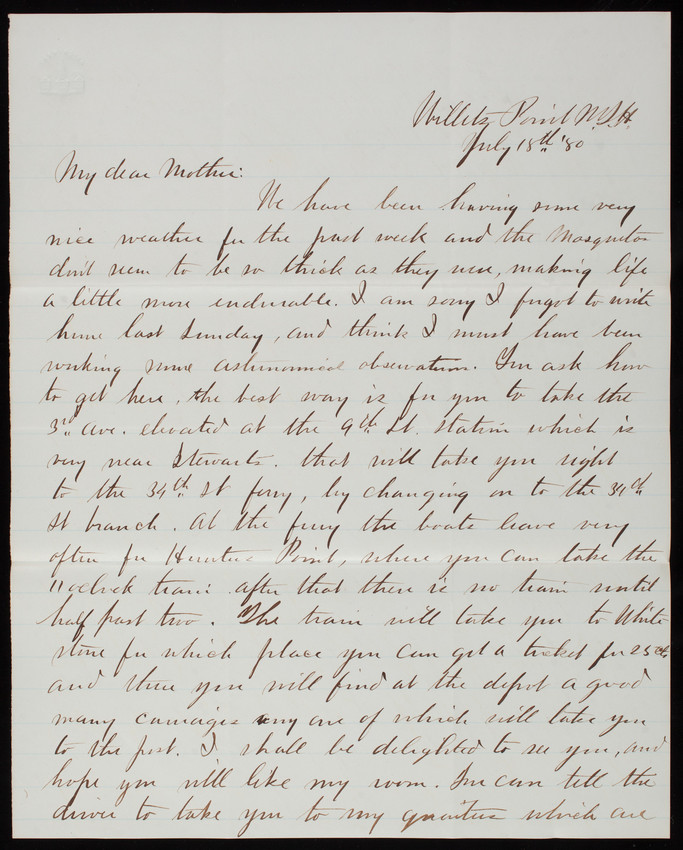 Willets Point N.Y.H.
July 18th '80
My dear Mother:
We have been having some very
nice weather for the past week and the Mosquitos
don't seem to be so thick as they were, making life
a little more endurable. I am sorry I forgot to write
home last Sunday, and think I must have been
working some astronomical observations. You ask how
to get here, the best way is for you to take the
3rd ave. elevated at the 9th St. station which is
very near Stewarts. that will take you right
to the 34th St ferry, by changing on to the 34th
St branch. At the ferry the boats leave very
often for Hunters Point, where you can take the
11 oclock train. after that there is no train until
half past two. The train will take you to White
stone for which place you can get a ticket for 25 cts
and there you will find at the depot a good
many carriages any one of which will take you
to the post. I shall be delighted to see you, and
hope you will like my room. You can tell the
driver to take you to my quarters which are